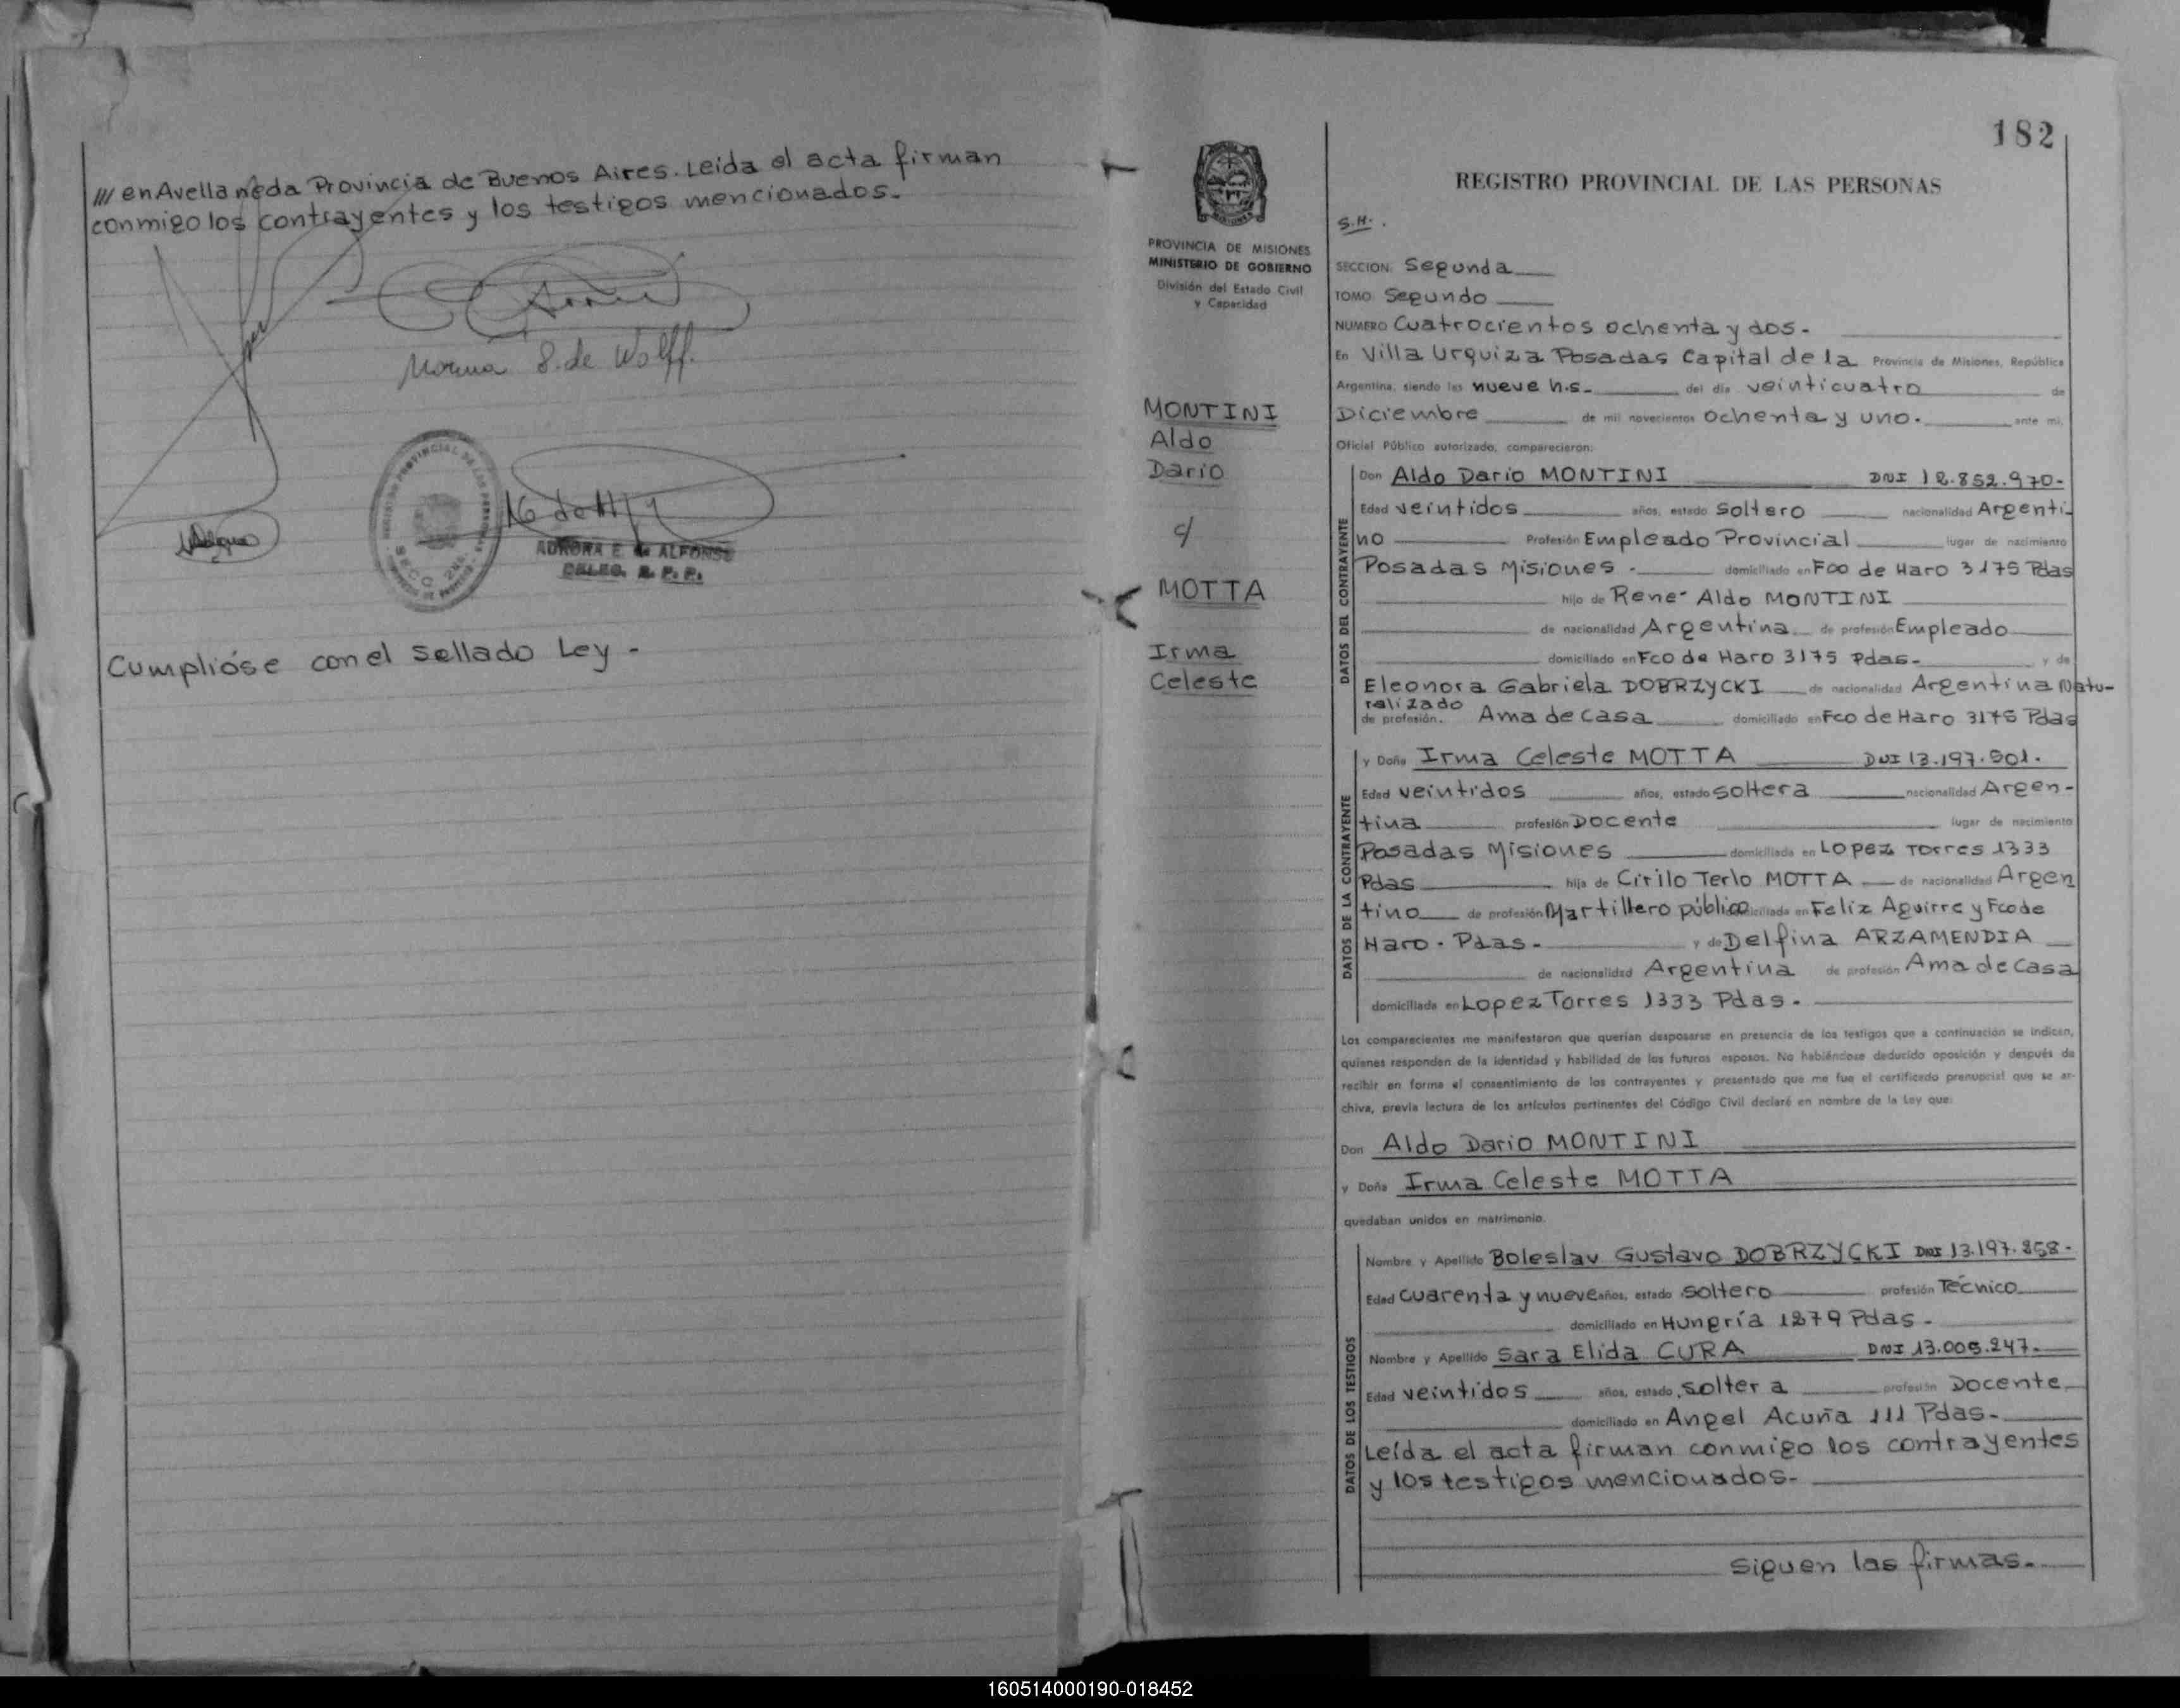 /// en Avellaneda Provincia de Buenos Aires. Leida el acta firman
conmigo los contrayentes y los testigos mencionados.-
Norma S. de Wolff.
REGISTRO PROVINCIAL DE LAS PERSONAS
SECC. 2da.
AURORA E. de ALFONSO
DELEG. R. P. P.
Cumplióse con el sellado Ley -
182
PROVINCIA DE MISIONES
MINISTERIO DE GOBIERNO
División del Estado Civil
y Capacidad
MONTINI
Aldo
Dario
c/
MOTTA
Irma
Celeste
REGISTRO PROVINCIAL DE LAS PERSONAS
S.H.
SECCION: Segunda
TOMO: Segundo
NUMERO Cuatrocientos ochenta y dos.-
En Villa Urquiza Posadas Capital de la Provincia de Misiones, República
Argentina, siendo las nueve h.s. del día veinticuatro de
Diciembre de mil novecientos ochenta y uno. ante mí,
Oficial Público autorizado, comparecieron:
DATOS DEL CONTRAYENTE
Don Aldo Dario MONTINI DNI 12.852.970-
Edad veintidos años, estado soltero nacionalidad Argenti-
no Profesión Empleado Provincial lugar de nacimiento
Posadas Misiones - domiciliado en Fco de Haro 3175 Pdas
hijo de Rene Aldo MONTINI
de nacionalidad Argentina de profesión Empleado
domiciliado en Fco de Haro 3175 Pdas- y de
Eleonora Gabriela DOBRZYCKI de nacionalidad Argentina Natu-
ralizado
de profesión. Ama de casa domiciliado en Fco de Haro 3175 Pdas
DATOS DE LA CONTRAYENTE
y Doña Irma Celeste MOTTA DNI 13.197.501.
Edad veintidos años, estado soltera nacionalidad Argen-
tina profesión Docente lugar de nacimiento
Posadas Misiones domiciliada en Lopez Torres 1333
Pdas hija de Cirilo Terlo MOTTA de nacionalidad Argen
tino de profesión Martillero público domiciliada en Feliz Aguirre y Fco de
Haro. Pdas.- y de Delfina ARZAMENDIA
de nacionalidad Argentina de profesión Ama de casa
domiciliada en Lopez Torres 1333 Pdas.-
Los comparecientes me manifestaron que querían desposarse en presencia de los testigos que a continuación se indican,
quienes responden de la identidad y habilidad de los futuros esposos. No habiéndose deducido oposición y después de
recibir en forma el consentimiento de los contrayentes y presentado que me fue el certificado prenupcial que se ar-
chiva, previa lectura de los artículos pertinentes del Código Civil declaré en nombre de la Ley que:
Don Aldo Dario MONTINI
y Doña Irma Celeste MOTTA
quedaban unidos en matrimonio.
DATOS DE LOS TESTIGOS
Nombre y Apellido Boleslav Gustavo DOBRZYCKI DNI 13.197.858-
Edad cuarenta y nueve años, estado soltero profesión Técnico
domiciliado en Hungría 1279 Pdas-
Nombre y Apellido Sara Elida CURA DNI 13.005.247.
Edad veintidos años, estado, soltera profesión Docente
domiciliado en Angel Acuña 111 Pdas-
Leída el acta firman conmigo los contrayentes
y los testigos mencionados-
Siguen las firmas-
160514000190-018452